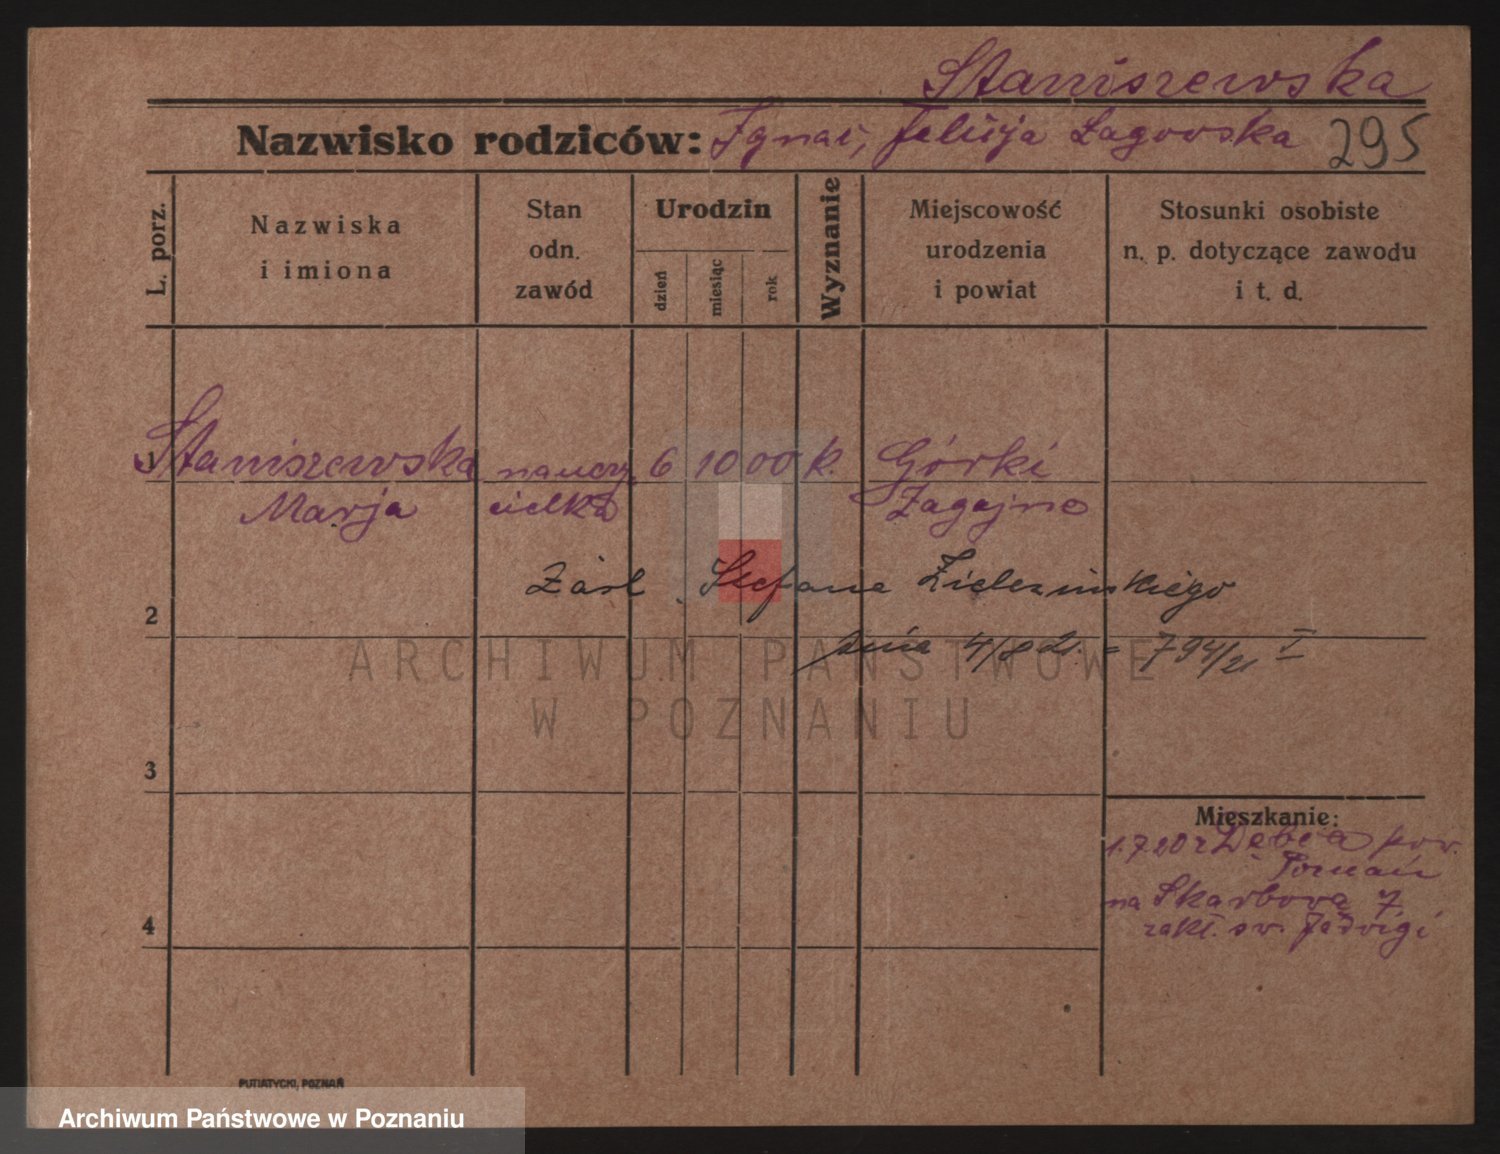 Staniszewska
Nazwisko rodziców: Ignac, Felicja Łagowska 295
L. porz.
Nazwiska
i imiona
Stan
odn.
zawód
Urodzin
dzień
miesiąc
rok
Wyznanie
Miejscowość
urodzenia
i powiat
Stosunki osobiste
n. p. dotyczące zawodu
i t. d.
1 Staniszewska nauczy 6 10 00 k. Górki
Marja cielka Zagajne
Zaśl. Stefana Zielezińskiego
2
dnia 4/8 21. = 794/21 I
ARCHIWUM PAŃSTWOWE
W POZNANIU
3
Mieszkanie:
1.7 20 z Dębca pow.
Poznań
na Skarbową 7
4
zakł. św. Jadwigi
PUTIATYCKI, POZNAŃ
Archiwum Państwowe w Poznaniu